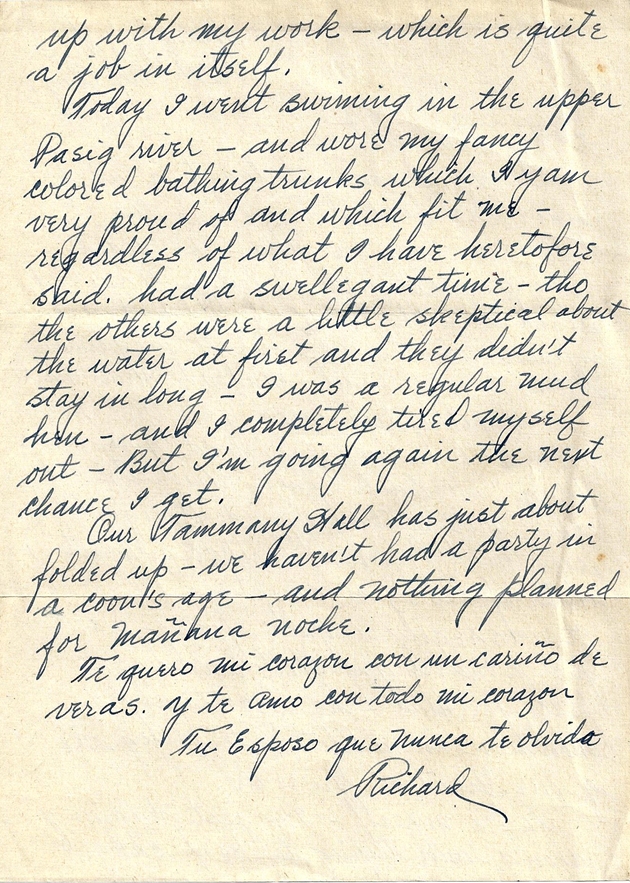 up with my work – which is quite
a job in itself.
Today I went swiming in the upper
Pasig river – and wore my fancy
colored bathing trunks which I yam
very proud of and which fit me –
regardless of what I have heretofore
said. had a swellegant time – tho
the others were a little skeptical about
the water at first and they didn't
stay in long – I was a regular mud
hen – and I completely tired myself
out – But I'm going again the next
chance I get.
Our Tammany Hall has just about
folded up – we haven't had a party in
a coon's age – and nothing planned
for Mañana noche.
Te quero mi corazon con un cariño de
veras. y te amo con todo mi corazon
Tu Esposo que nunca te olvida
Richard